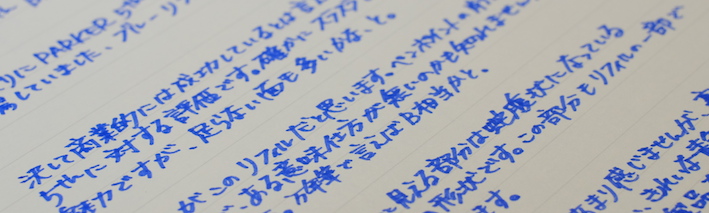 りに PARKER 5th
属していました、ブルーリフ
決して商業的には成功しているとは言
5thに対する評価です。確かにスラスラ
魅力ですが、足らない面も多いかな、と。
がこのリフィルだと思います。ペンポイントの
、ある意味仕方が無いのかも知れません
万年筆で言えばB相当かと。
見える部分は蛇腹状になっている
の形状です。この部分もリフィルの一部で
ます。
まり感じませんが、
きれいな